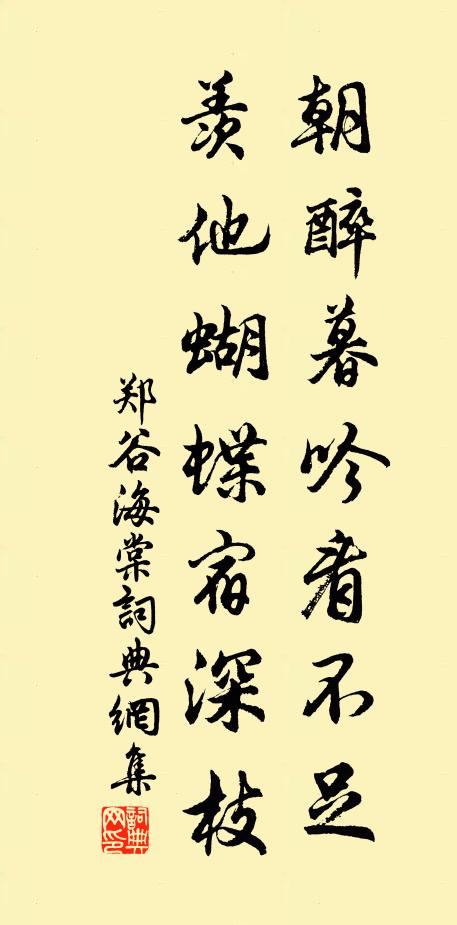 朝醉暮吟看不足
羡他蝴蝶宿深枝
郑谷海棠詞典網集
詞典网印